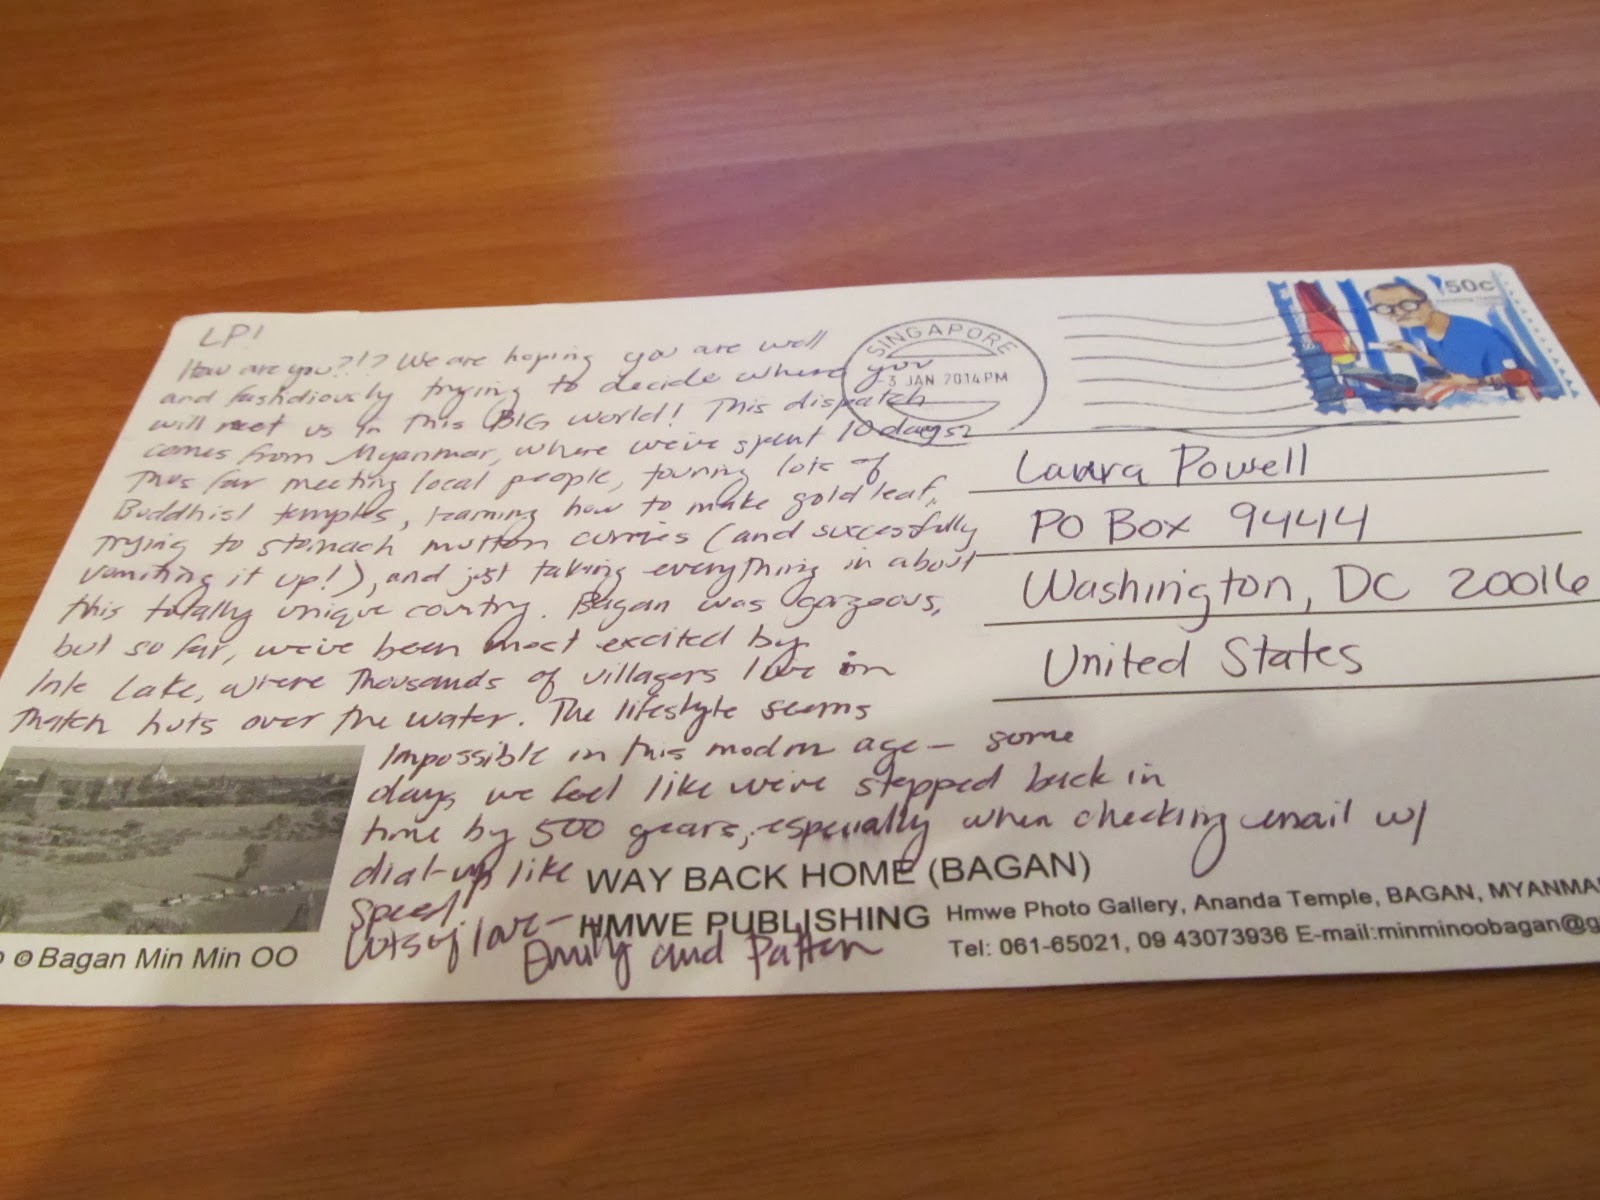 LP!
How are you?!? We are hoping you are well
and fastidiously trying to decide where you
will meet us in this BIG world! This dispatch
comes from Myanmar, where we've spent 10 days
thus far meeting local people, touring lots of
Buddhist temples, learning how to make gold leaf,
trying to stomach mutton curries (and successfully
vomiting it up!), and just taking everything in about
this totally unique country. Bagan was gorgeous,
but so far, we've been most excited by
Inle Lake, where thousands of villagers live in
thatch huts over the water. The lifestyle seems
impossible in this modern age - some
days we feel like we've stepped back in
time by 500 years, especially when checking email w/
dial-up like
speed!
Lots of love -
Emily and Patten
SINGAPORE
3 JAN 2014 PM
50c
Laura Powell
PO Box 9444
Washington, DC 20016
United States
WAY BACK HOME (BAGAN)
HMWE PUBLISHING
Hmwe Photo Gallery, Ananda Temple, BAGAN, MYANMA
Tel: 061-65021, 09 43073936 E-mail:minminoobagan@g
o © Bagan Min Min OO